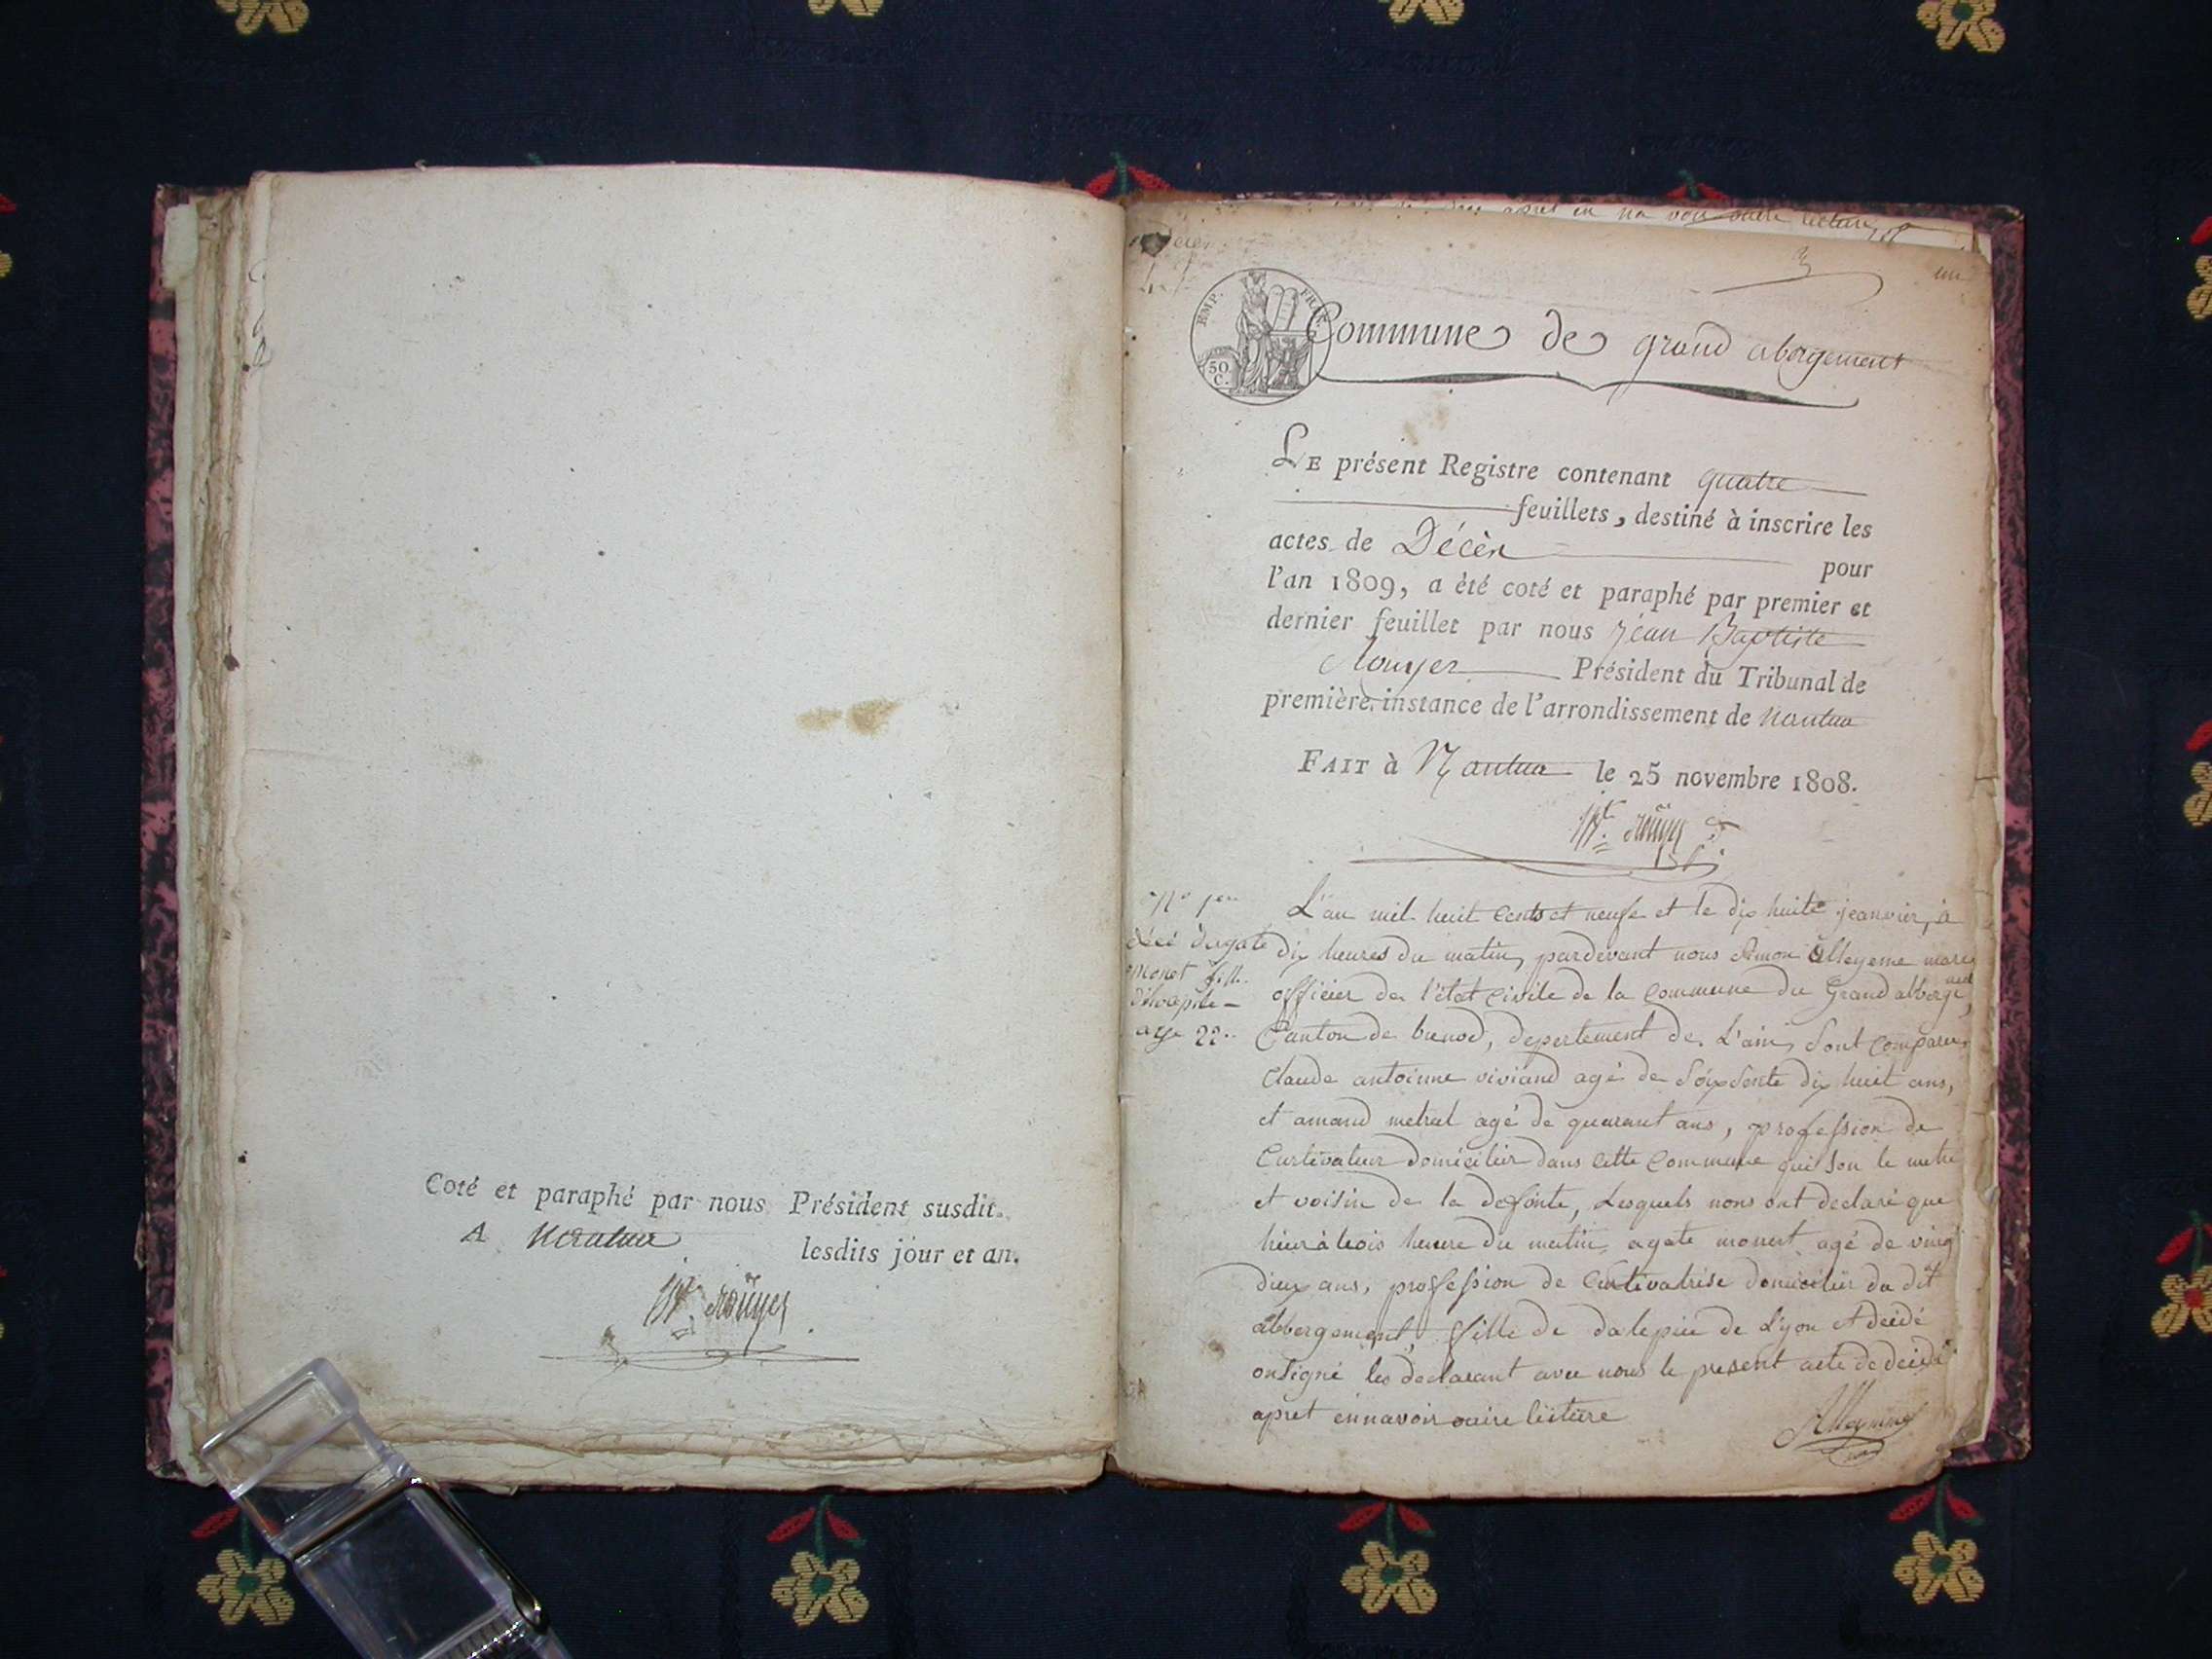 Coté et paraphé par nous Président susdit.
A Nantua lesdits jour et an.
J.Bte Roüyer
apret en na voir ouire lecture
un
EMP. FRAN.
50 C.
Commune de grand abergement
LE présent Registre contenant quatre
feuillets, destiné à inscrire les
actes de Décès pour
l'an 1809, a été coté et paraphé par premier et
dernier feuillet par nous Jean Baptiste
Rouyer Président du Tribunal de
première instance de l'arrondissement de Nantua
FAIT à Nantua le 25 novembre 1808.
J.Bte Roüyer
No 1er
décé d'agate
monet fille
d'hospice
age 22
L'an mil huit cents et neufe et le dix huite jeanvier, à
dix heures du matin, pardevant nous Aimon Alleyeme maire
officier de l'état civile de la commune du Grand abbergement
Canton de brenod, departement de L'ain, Sont comparu
Claude antoinne viviand agé de Soixsente dix huit ans,
et amand metral agé de quarant ans, profession de
Curtivateur domicilier dans cette Commune qui son le metre
et voisin de la defonte, Lesquels nons ont declaré que
hier à trois heure du matin, agate monert agé de ving
deux ans, profession de Curtivatrise domicilier du dit
abbergement, fille de dalepiié de Lyon et décidé
onsigné les declarant avec nous le present acte de décidé
apret ennavoir ouire liiture
Alleyeme